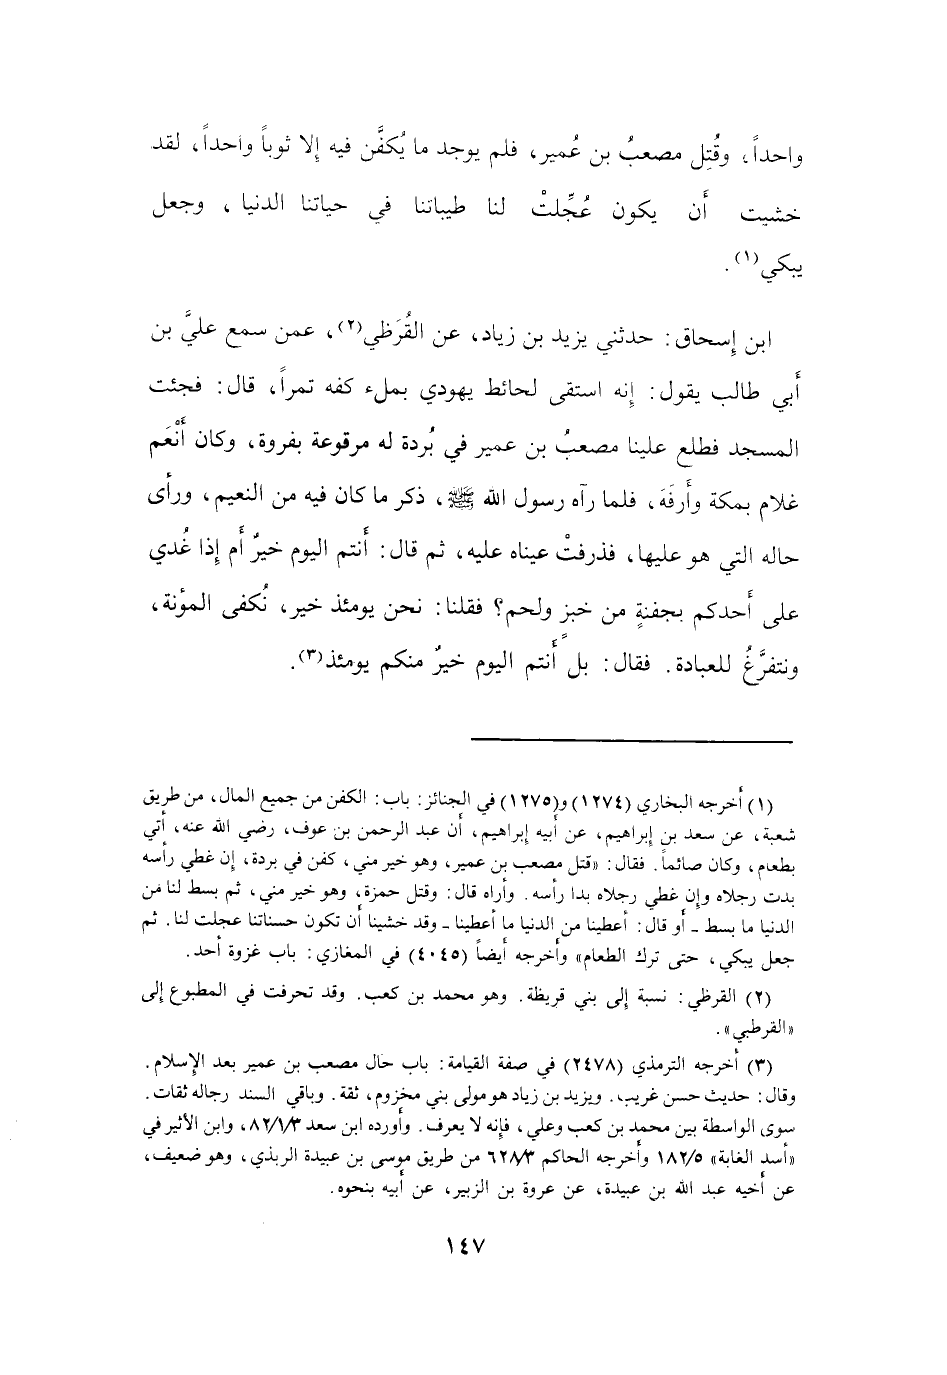 واحداً، وقُتِل مصعبُ بن عُمير، فلم يوجد ما يُكفَّن فيه إلا ثوباً واحداً، لقد
خشيت أَن يكون عُجِّلتْ لنا طيباتنا في حياتنا الدنيا، وجعل
يبكي(١).
ابن إِسحاق: حدثني يزيد بن زياد، عن القُرَظي(٢)، عمن سمع عليَّ بن
أَبي طالب يقول: إِنه استقى لحائط يهودي بملء كفه تمراً، قال: فجئت
المسجد فطلع علينا مصعبُ بن عمير في بُردة له مرقوعة بفروة، وكان أَنْعَم
غلام بمكة وأَرفَهَ، فلما رآه رسول الله ﷺ، ذكر ما كان فيه من النعيم، ورأى
حاله التي هو عليها، فذرفتْ عيناه عليه، ثم قال: أَنتم اليوم خيرٌ أَم إِذا غُدي
على أَحدكم بجفنةٍ من خبزٍ ولحم؟ فقلنا: نحن يومئذ خير، نُكفى المؤنة،
ونتفرَّغُ للعبادة. فقال: بل أَنتم اليوم خيرٌ منكم يومئذ(٣).
(١) أخرجه البخاري (١٢٧٤) و(١٢٧٥) في الجنائز: باب: الكفن من جميع المال، من طريق
شعبة، عن سعد بن إبراهيم، عن أبيه إبراهيم، أن عبد الرحمن بن عوف، رضي الله عنه، أتي
بطعام، وكان صائماً. فقال: «قتل مصعب بن عمير، وهو خير مني، كفن في بردة، إن غطي رأسه
بدت رجلاه وإن غطي رجلاه بدا رأسه. وأراه قال: وقتل حمزة، وهو خير مني، ثم بسط لنا من
الدنيا ما بسط ـ أو قال: أعطينا من الدنيا ما أعطينا ـ وقد خشينا أن تكون حسناتنا عجلت لنا. ثم
جعل يبكي، حتى ترك الطعام» وأخرجه أيضاً (٤٠٤٥) في المغازي: باب غزوة أحد.
(٢) القرظي: نسبة إلى بني قريظة. وهو محمد بن كعب. وقد تحرفت في المطبوع إلى
«القرطبي».
(٣) أخرجه الترمذي (٢٤٧٨) في صفة القيامة: باب حال مصعب بن عمير بعد الإسلام.
وقال: حديث حسن غريب. ويزيد بن زياد هو مولى بني مخزوم، ثقة. وباقي السند رجاله ثقات.
سوى الواسطة بين محمد بن كعب وعلي، فإنه لا يعرف. وأورده ابن سعد ٨٢/١/٣، وابن الأثير في
«أسد الغابة» ١٨٢/٥ وأخرجه الحاكم ٦٢٨/٣ من طريق موسى بن عبيدة الربذي، وهو ضعيف،
عن أخيه عبد الله بن عبيدة، عن عروة بن الزبير، عن أبيه بنحوه.
١٤٧